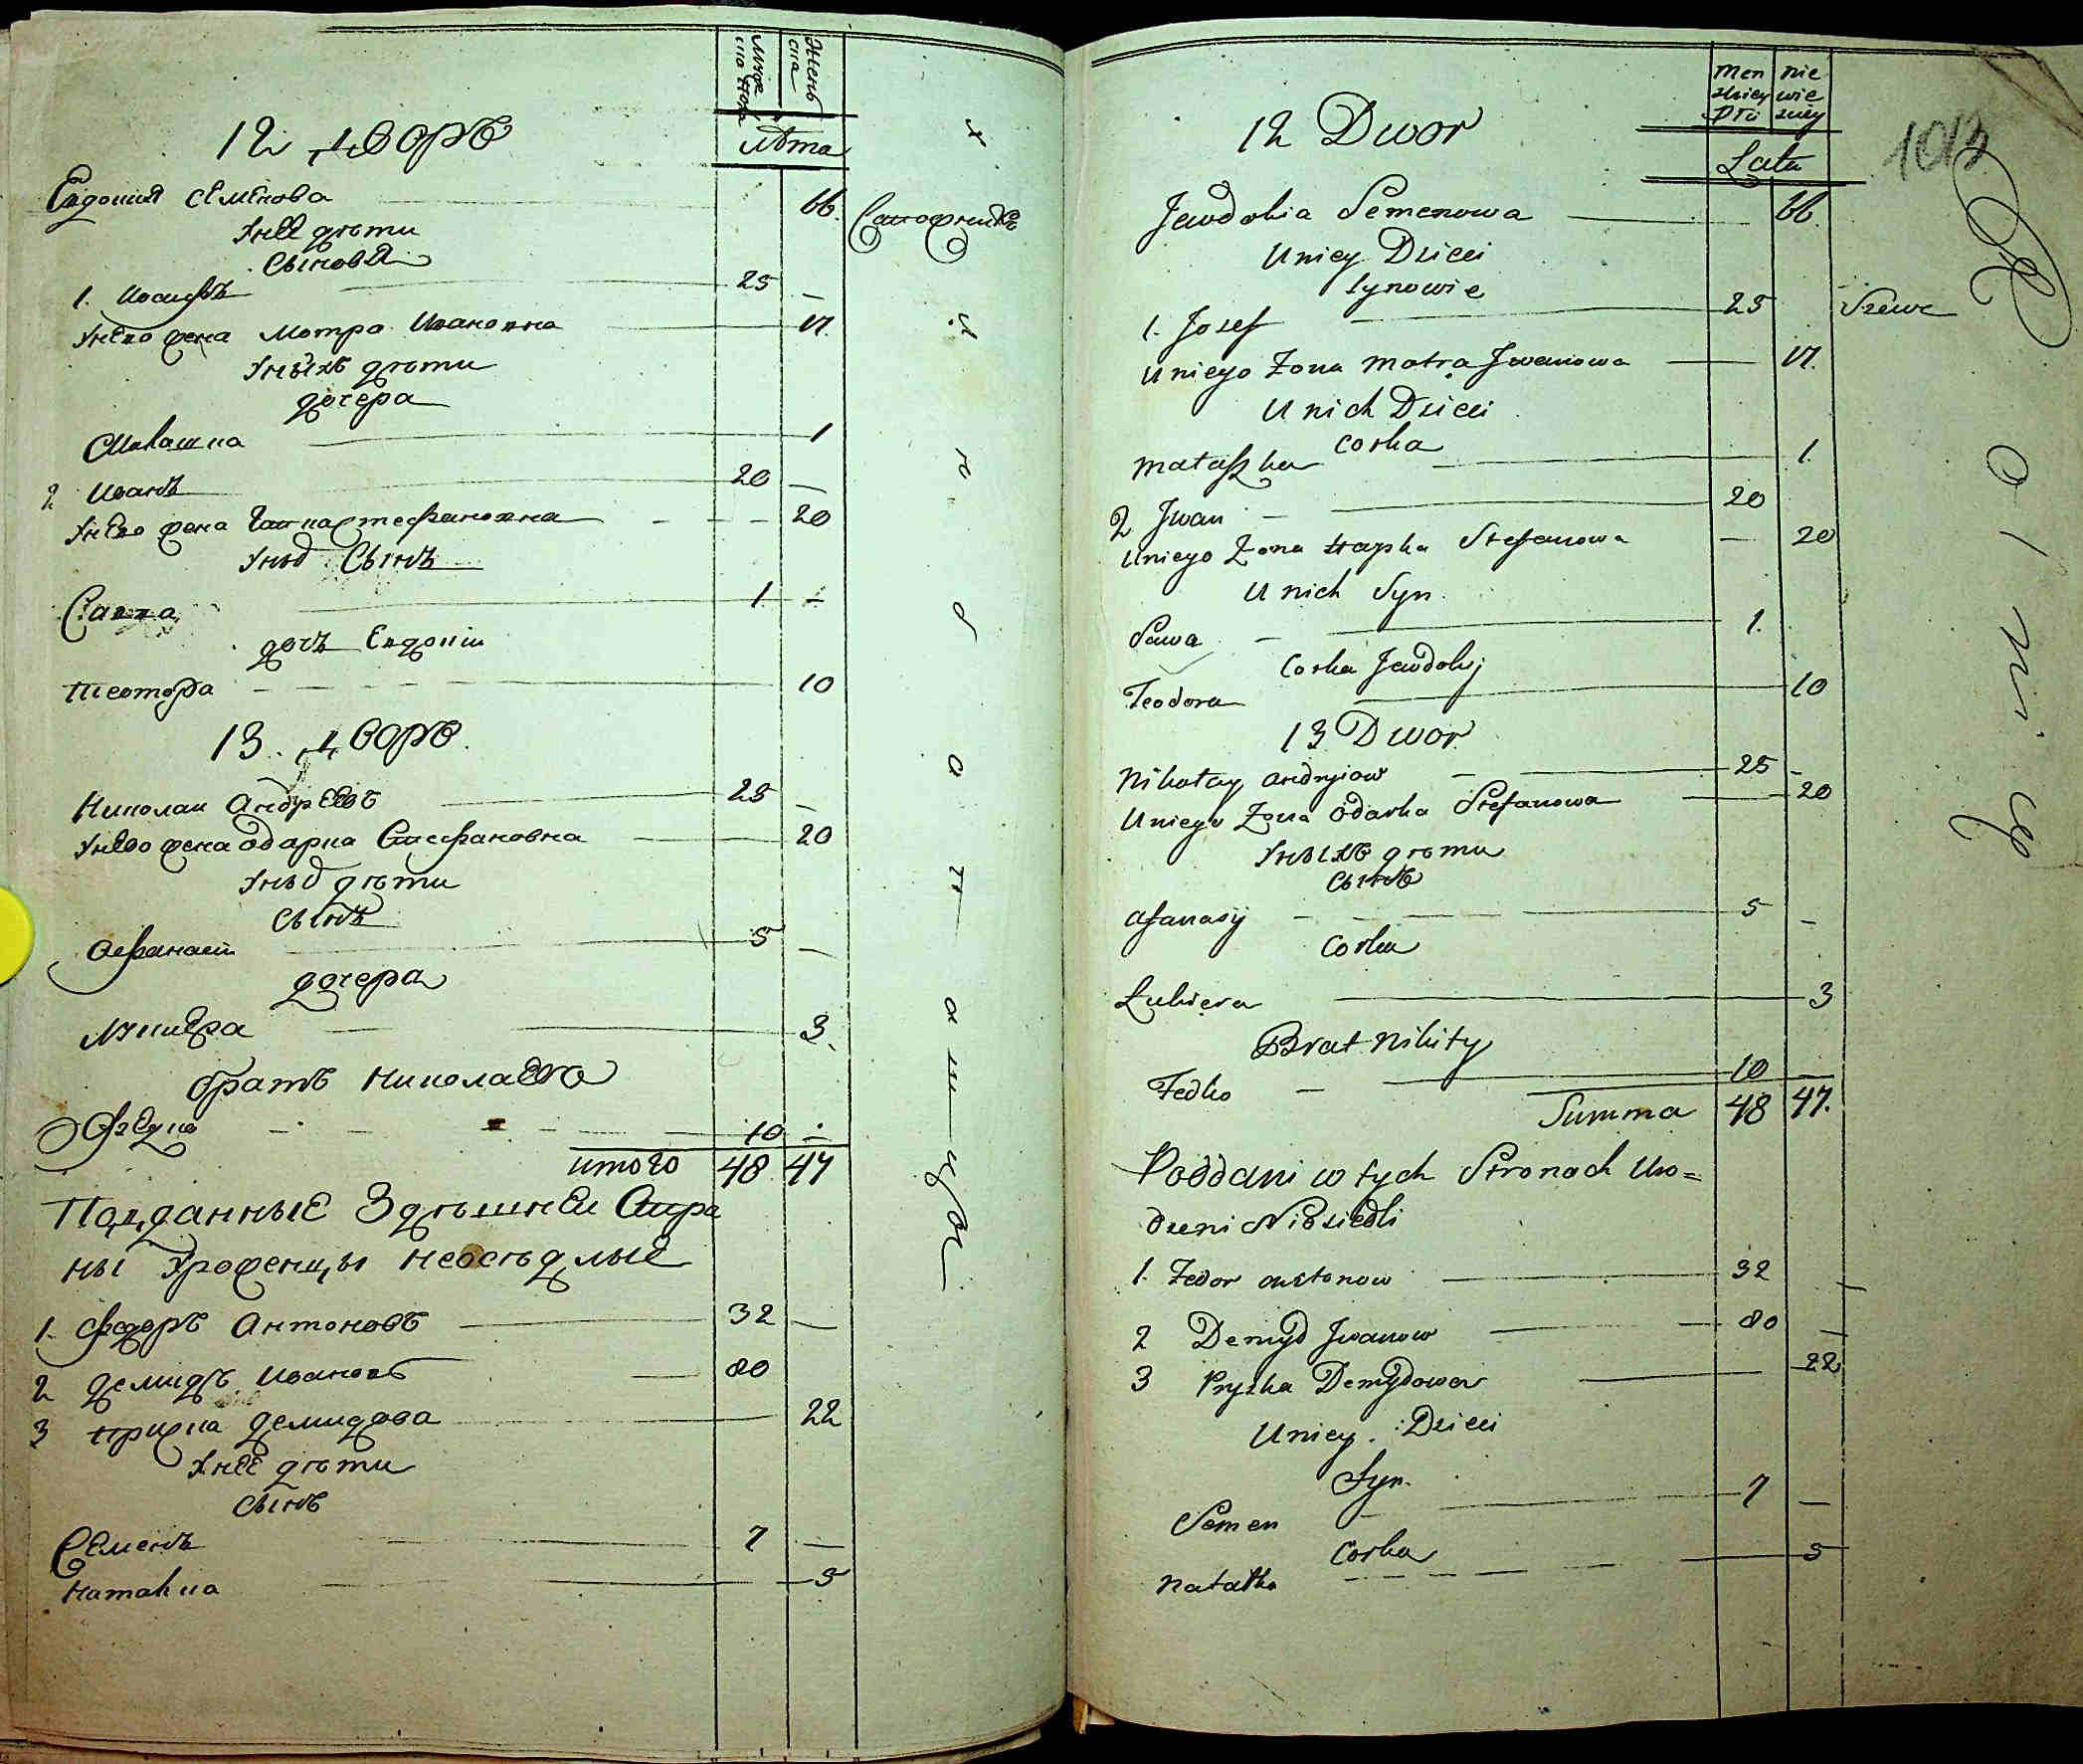 Мужеска пола
Женьска
лѣта
12 дворъ
Евдокия Семенова 66. Сапожникъ
У нее дѣти
Сынова
1. Иосифъ 25 —
У него жена Мотра Ивановна 17.
У ныхъ дѣти
дочера
Малашка 1
2 Иванъ 20 —
У него жена Гапка Стефановна 20
У ных Сынъ
Савва 1 —
дочь Евдокіи
Теодора 10
13. дворъ
Николай Андреевъ 25 —
У него жена Одарка Стефановна 20
У ных дѣти
Сынъ
Афанасій 5 —
дочера
Лукиера 3.
братъ Николаева
Федко 10 —
итого 48 47
Подданные Здѣшней Стра
ны Уроженцы неосѣдлые
1. Федоръ Антоновъ 32 —
2 Демидъ Ивановъ 80
3 Приска Демидова 22
У нее дѣти
Сынъ
Семенъ 7 —
Наталка 5
men
zkiey
płci
nie
wie
sciey
Lata
101
12 Dwor
Jewdokia Semenowa 66.
U niey Dzieci
Synowie
1. Josef 25 Szewc
U niego Zona Motra Jwanowa 17.
U nich Dzieci
Corka
Małaszka 1.
2 Jwan 20
U niego Zona Hapka Stefanowa — 20
U nich Syn.
Sawa 1.
Corka Jewdokij
Teodora 10
13 Dwor
Nikołay Andryiow 25 —
U niego Zona Odarka Stefanowa 20
У ныхъ дѣти
Сынъ
Afanasij 5 —
Corka
Łukiera 3
Brat Nikity
Fedko 10 —
Summa 48 47.
Poddani w tych Stronach Uro=
dzeni Nieosiedli
1. Fedor Antonow 32 —
2 Demyd Jwanow 80 —
3 Pryska Demydowa 22
U niey Dzieci
Syn.
Semen 7 —
Corka
Natałka 5